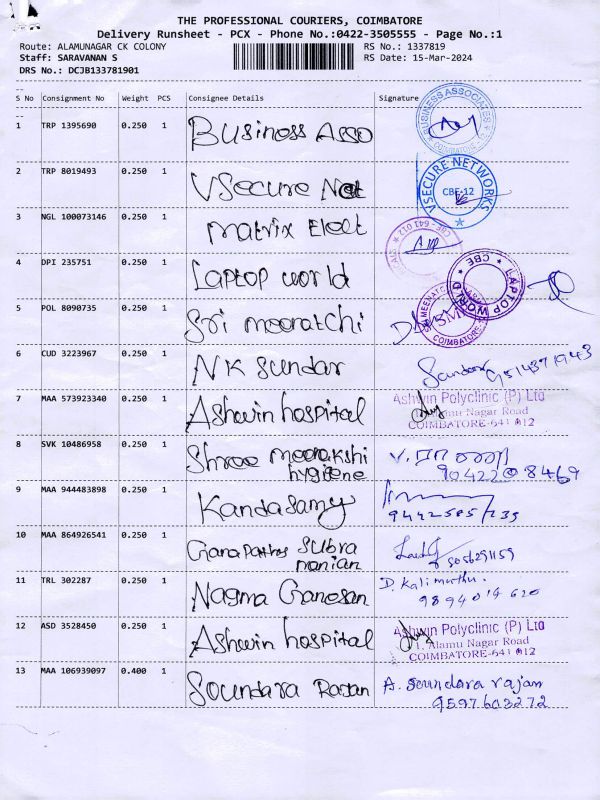 THE PROFESSIONAL COURIERS, COIMBATORE
Delivery Runsheet - PCX - Phone No.:0422-3505555 - Page No.:1
Route: ALAMUNAGAR CK COLONY
RS No.: 1337819
Staff: SARAVANAN S
RS Date: 15-Mar-2024
DRS No.: DCJB133781901
S No Consignment No Weight PCS Consignee Details Signature
1 TRP 1395690 0.250 1 Business Asso
BUSINESS ASSOCIATES COIMBATORE
2 TRP 8019493 0.250 1 VSecure Net
VSECURE NETWORKS CBE-12
3 NGL 100073146 0.250 1 Matrix Elect
CBE - 641 012
4 DPI 235751 0.250 1 Laptop world
LAPTOP WORLD CBE
5 POL 8090735 0.250 1 Sri meenatchi
COIMBATORE
6 CUD 3223967 0.250 1 NK Sundar Sundar 9514371943
7 MAA 573923340 0.250 1 Ashwin hospital
Ashwin Polyclinic (P) Ltd
Alamu Nagar Road
COIMBATORE-641 012
8 SVK 10486958 0.250 1 Shree meenakshi
hygiene
V.
9042208469
9 MAA 944483898 0.250 1 Kandasamy
10 MAA 864926541 0.250 1 Ganapathy Subra
manian
5056291159
11 TRL 302287 0.250 1 Nagma Ganesan D. Kalimuthu.
9894014620
12 ASD 3528450 0.250 1 Ashwin hospital
Ashwin Polyclinic (P) Ltd
1, Alamu Nagar Road
COIMBATORE-641 012
13 MAA 106939097 0.400 1 Soundara Rajan A. Soundara rajan
9597603272